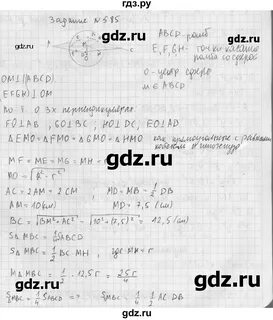 Задание № 515
ABCD ромб
E, F, G, H - точки касания
ромба со сферой
O - центр сферы
M ∈ ABCD
OM⊥(ABCD)
E F G H ⊥ OM
По Т. О 3х перпендикулярах
FO⊥AB, GO⊥BC, HO⊥DC, EO⊥AD
ΔEMO = ΔFMO = ΔGMO = ΔHMO как прямоугольные с равными
катетом и гипотенузой
MF = ME = MG = MH =
MO = √R² - r²
AC = 2AM = 2 CM , MD = MB = 1/2 DB
AM = 10 (см) , MD = 7,5 (см)
BC = √BM² + AC² = √10² + (7,5)² = 12,5 (см)
S ΔMBC = 1/4 SABCD
S ΔMBC = 1/2 BC MH , где MH = r
MΔMBC = 1/2 · 12,5 r = 25r/4
SMBC = 1/4 SABCD => SMBC = 1/4 · 1/2 AC DB
gdz.ru
gdz.ru
gdz.ru
gdz.ru
gdz.ru
gdz.ru
gdz.ru